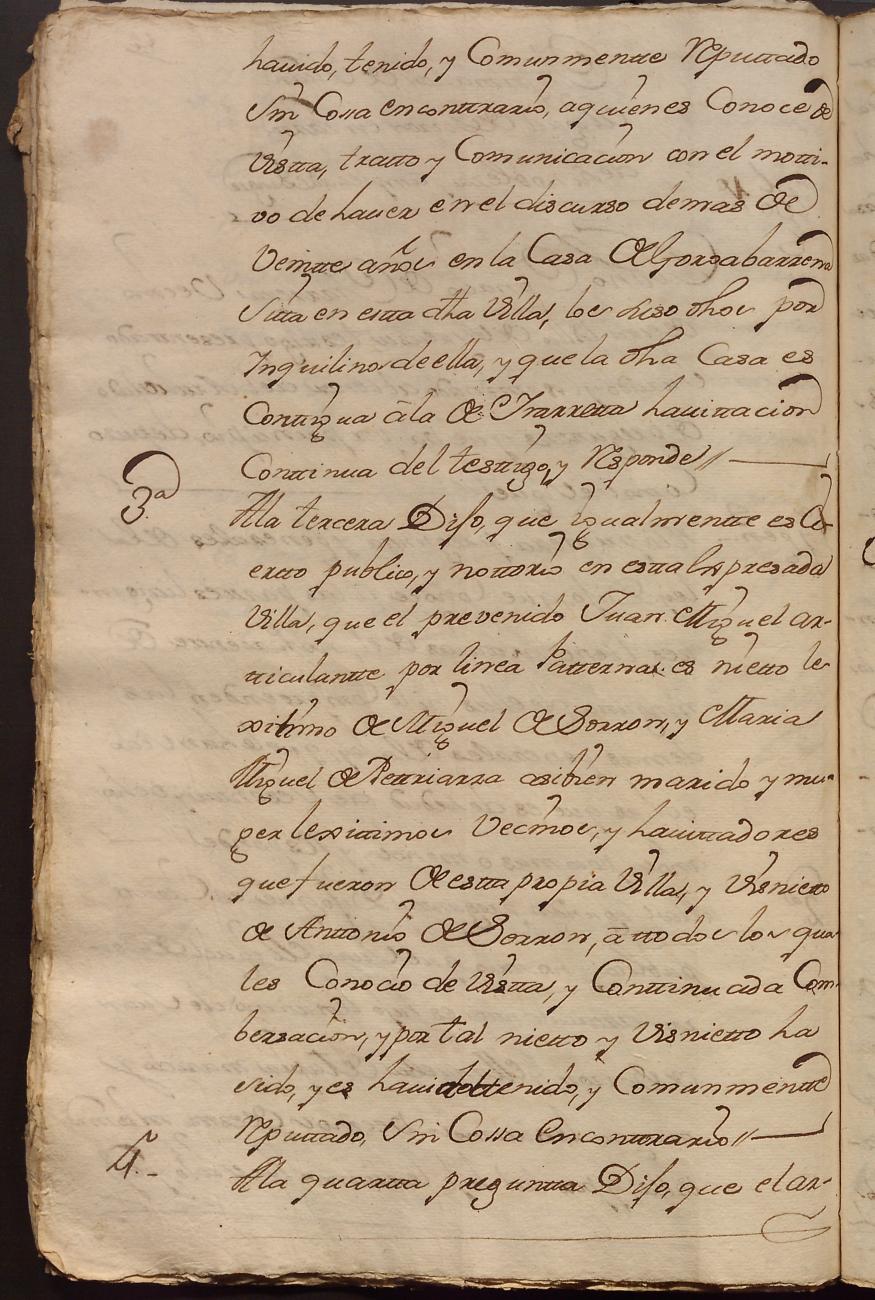 hauido, tenido, y Comunmentte Reputtado
Sin Cossa en conttrario, aquienes Conoce de
Vistta, tratto y Comunicacion con el motti-
vo de hauer en el discurso demas de
Veintte años en la Casa de Gorosabarrena
sitta en estta dha Villa, los dhos por
Inquilinos de ella, y que la dha Casa es
Conttigua â la de Irarretta hauittacion
Conttinua del testtigo, y Responde //
3ª Ala tercera Dijo, que igualmentte es Ci-
ertto publico, y nottorio en estta Expresada
Villa, que el prevenido Juan Miguel ar-
tticulantte por linea Patternal es nietto le-
xitimo de Miguel de Sorron, y Maria
Miguel de Pettriarza asibien marido y mu-
ger lexittimos Vecinos, y hauittadores
que fueron de estta propia Villa, y Visnietto
de Anttonio de Sorron, â ttodos los qua-
les Conocio de Vistta, y Conttinuada Com-
bersacion, y por tal nietto y Visnietto ha
sido, y es hauido tenido, y Comunmentte
Reputtado, Sin Cossa En conttrario //
4.- Ala quartta preguntta Dijo, que el ar-